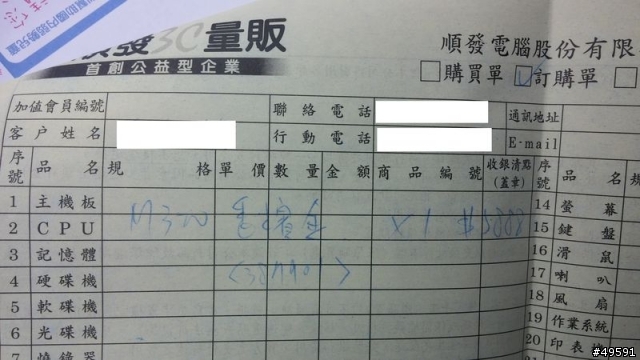 順發3C量販
首創公益型企業
順發電腦股份有限
購買單 訂購單
加值會員編號 聯絡電話 通訊地址
客戶姓名 行動電話 E-mail
序號 品名 規格 單價 數量 金額 商品編號 收銀清點(蓋章) 序號 品名 規
1 主機板 14 螢幕
2 CPU X1 15 鍵盤
3 記憶體 16 滑鼠
4 硬碟機 17 喇叭
5 軟碟機 18 風扇
6 光碟機 19 作業系統
7 燒錄器 20 印表機
#49591